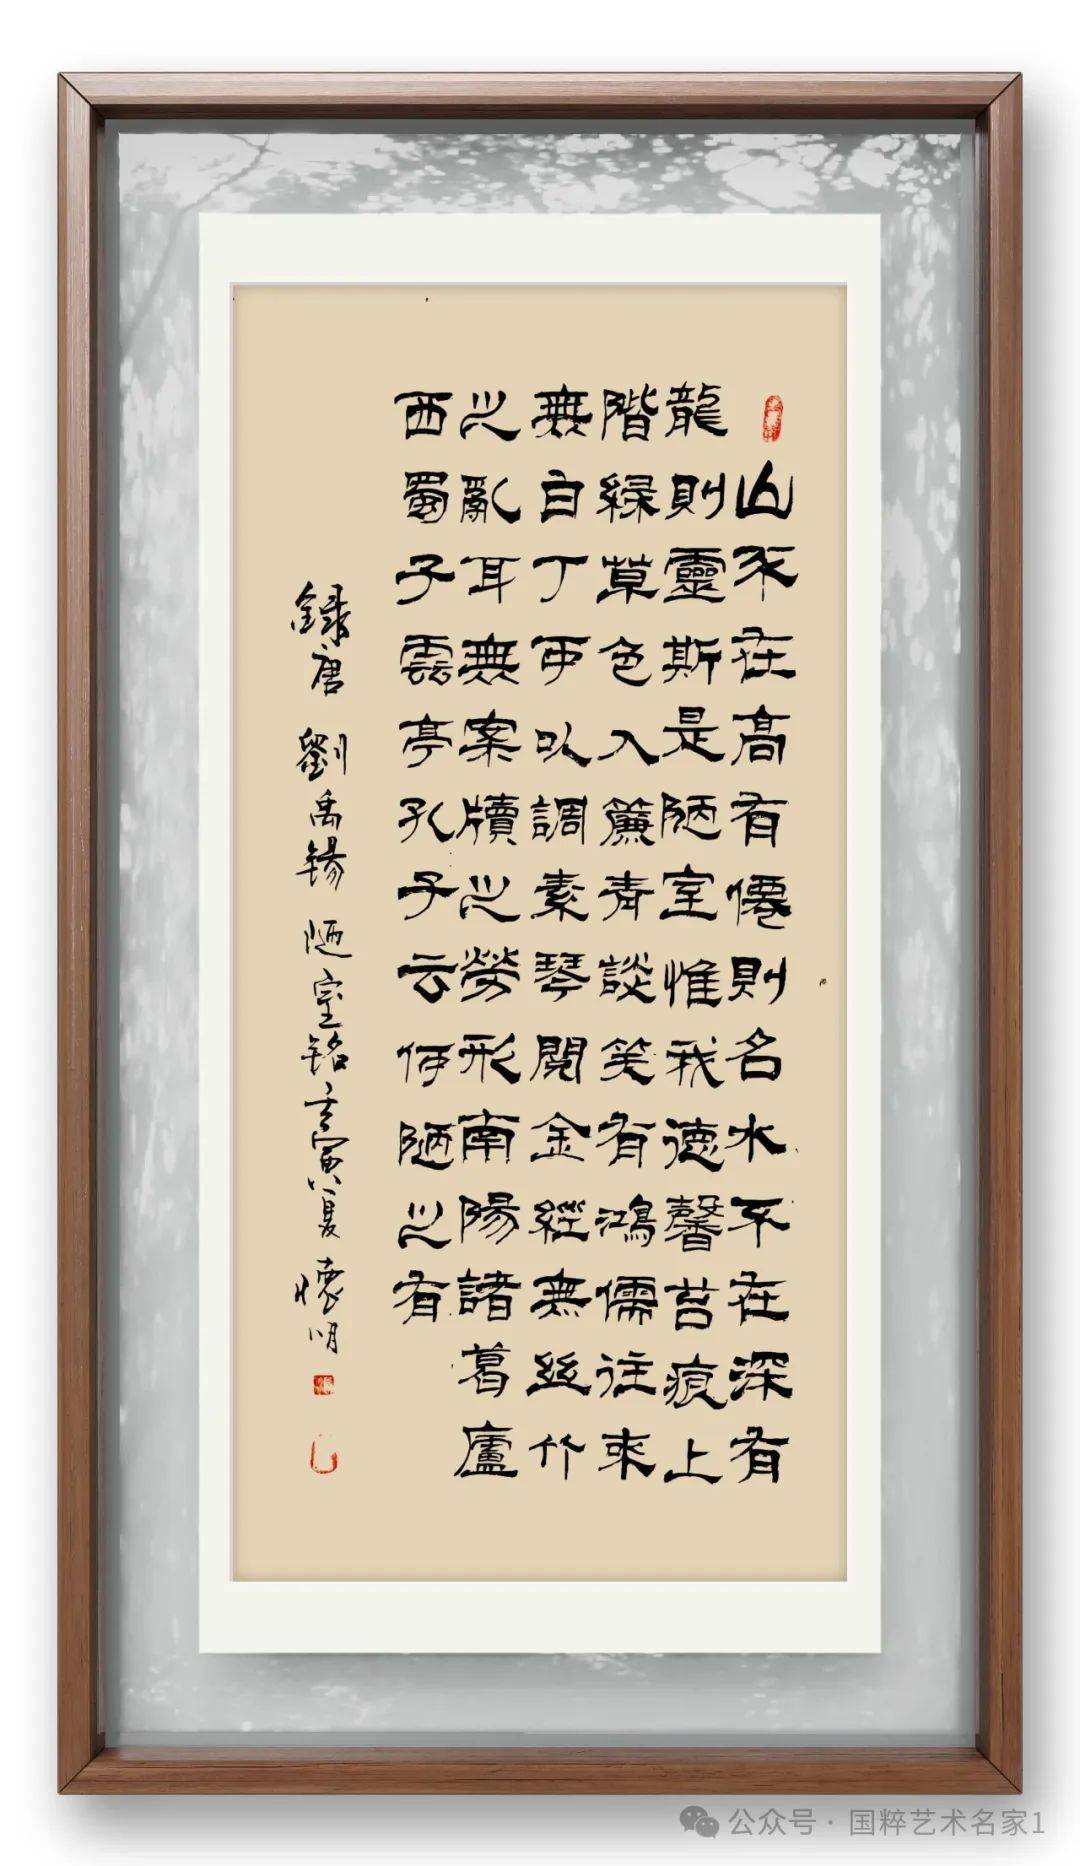 山不在高有僊則名水不在深有
龍則靈斯是陋室惟我德馨苔痕上
階緑草色入簾青談笑有鴻儒往來
無白丁可以調素琴閲金經無絲竹
之亂耳無案牘之勞形南陽諸葛廬
西蜀子雲亭孔子云何陋之有
録唐劉禹锡陋室铭壬寅夏懷明
公众号·国粹艺术名家1